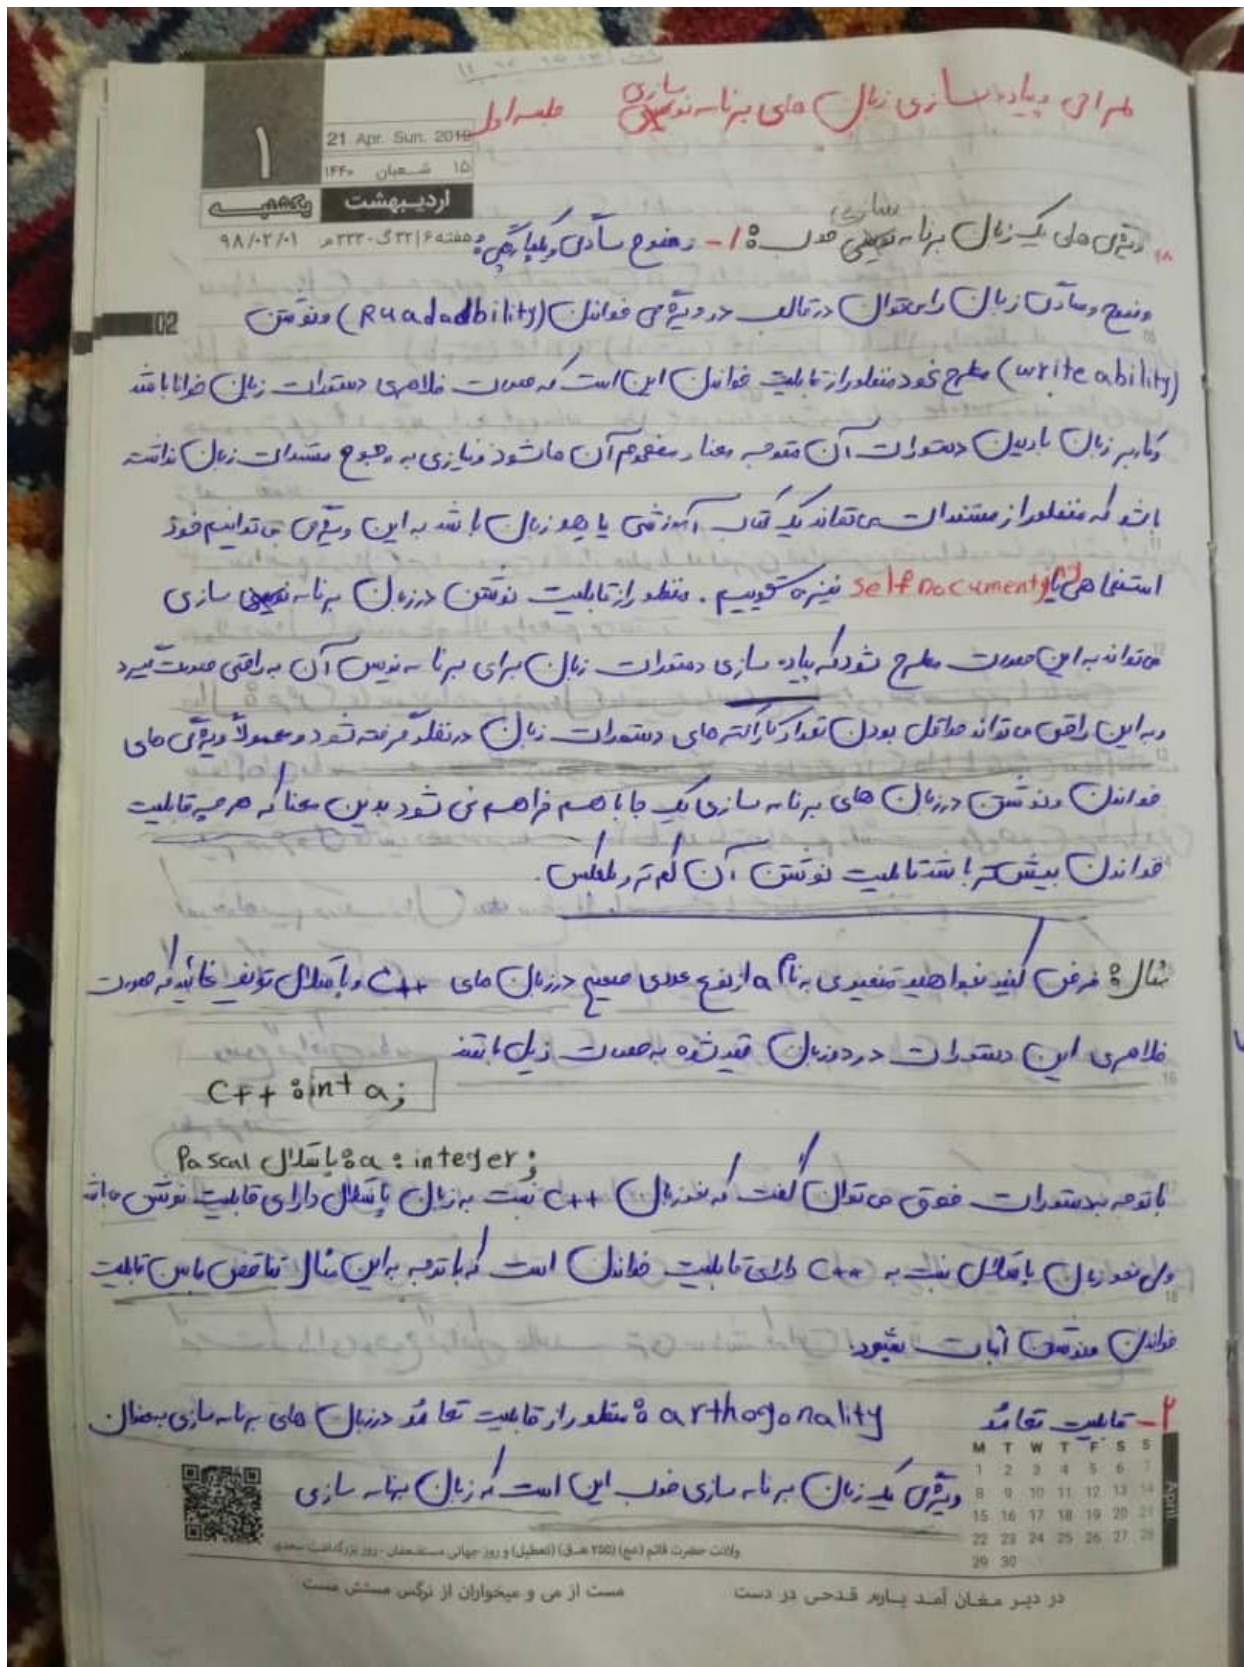 طراحی و پیاده سازی زبان های برنامه سازی جلسه اول
21 Apr. Sun. 2019
۱۵ شعبان ۱۴۴۰
۱
اردیبهشت
یکشنبه
۹۸/۰۲/۰۱
ویژگی های یک زبان برنامه سازی خوب: ۱- وضوح سادگی و یکپارچگی:
02
وضوح و سادگی زبان را می توان در قالب دو ویژگی خواندن (Ruadadbility) و نوشتن
(write ability) مطرح نمود منظور از قابلیت خواندن این است که صورت ظاهری دستورات زبان خوانا باشد
و کاربر زبان با دیدن دستورات آن متوجه معنا و مفهوم آن ها شود و نیازی به رجوع مستندات زبان نداشته
باشد که منظور از مستندات می تواند یک کتاب آموزشی یا هلپ زبان باشد به این ویژگی می توانیم خود
Self Documenty نیز می گوییم . منظور از قابلیت نوشتن در زبان برنامه سازی
می تواند به این صورت مطرح شود که پیاده سازی دستورات زبان برای برنامه نویس آن به راحتی صورت گیرد
و به این راحتی می تواند حداقل بودن تعداد کاراکترهای دستورات زبان در نظر گرفته شود و معمولاً ویژگی های
خواندن و نوشتن در زبان های برنامه سازی یک جا با هم فراهم نمی شود بدین معنا که هر چه قابلیت
خواندن بیشتر باشد قابلیت نوشتن آن کم تر و بالعکس.
مثال: فرض کنید بخواهید متغیری به نام a از نوع عددی صحیح در زبان های C++ و پاسکال تعریف نمائید که صورت
ظاهری این دستورات در دو زبان قید شده به صورت زیل باشند
C++ : int a;
Pascal پاسکال : a : integer ;
با توجه به دستورات فوق می توان گفت که خود زبان C++ نسبت به زبان پاسکال دارای قابلیت نوشتن می باشد
ولی خود زبان پاسکال نسبت به C++ دارای قابلیت خواندن است که با توجه به این مثال تناقض مابین قابلیت
خواندن و نوشتن اثبات میشود.
۲- قابلیت تعامد arthogonality : منظور از قابلیت تعامد در زبان های برنامه سازی به عنوان
ویژگی یک زبان برنامه سازی خوب این است که زبان برنامه سازی
April
M T W T F S S
1 2 3 4 5 6 7
8 9 10 11 12 13 14
15 16 17 18 19 20 21
22 23 24 25 26 27 28
29 30
ولادت حضرت قائم (عج) (۲۵۵ هـ.ق) (تعطیل) و روز جهانی مستضعفان - روز بزرگداشت سعدی
در دیر مغان آمد یارم قدحی در دست مست از می و میخواران از نرگس مستش مست